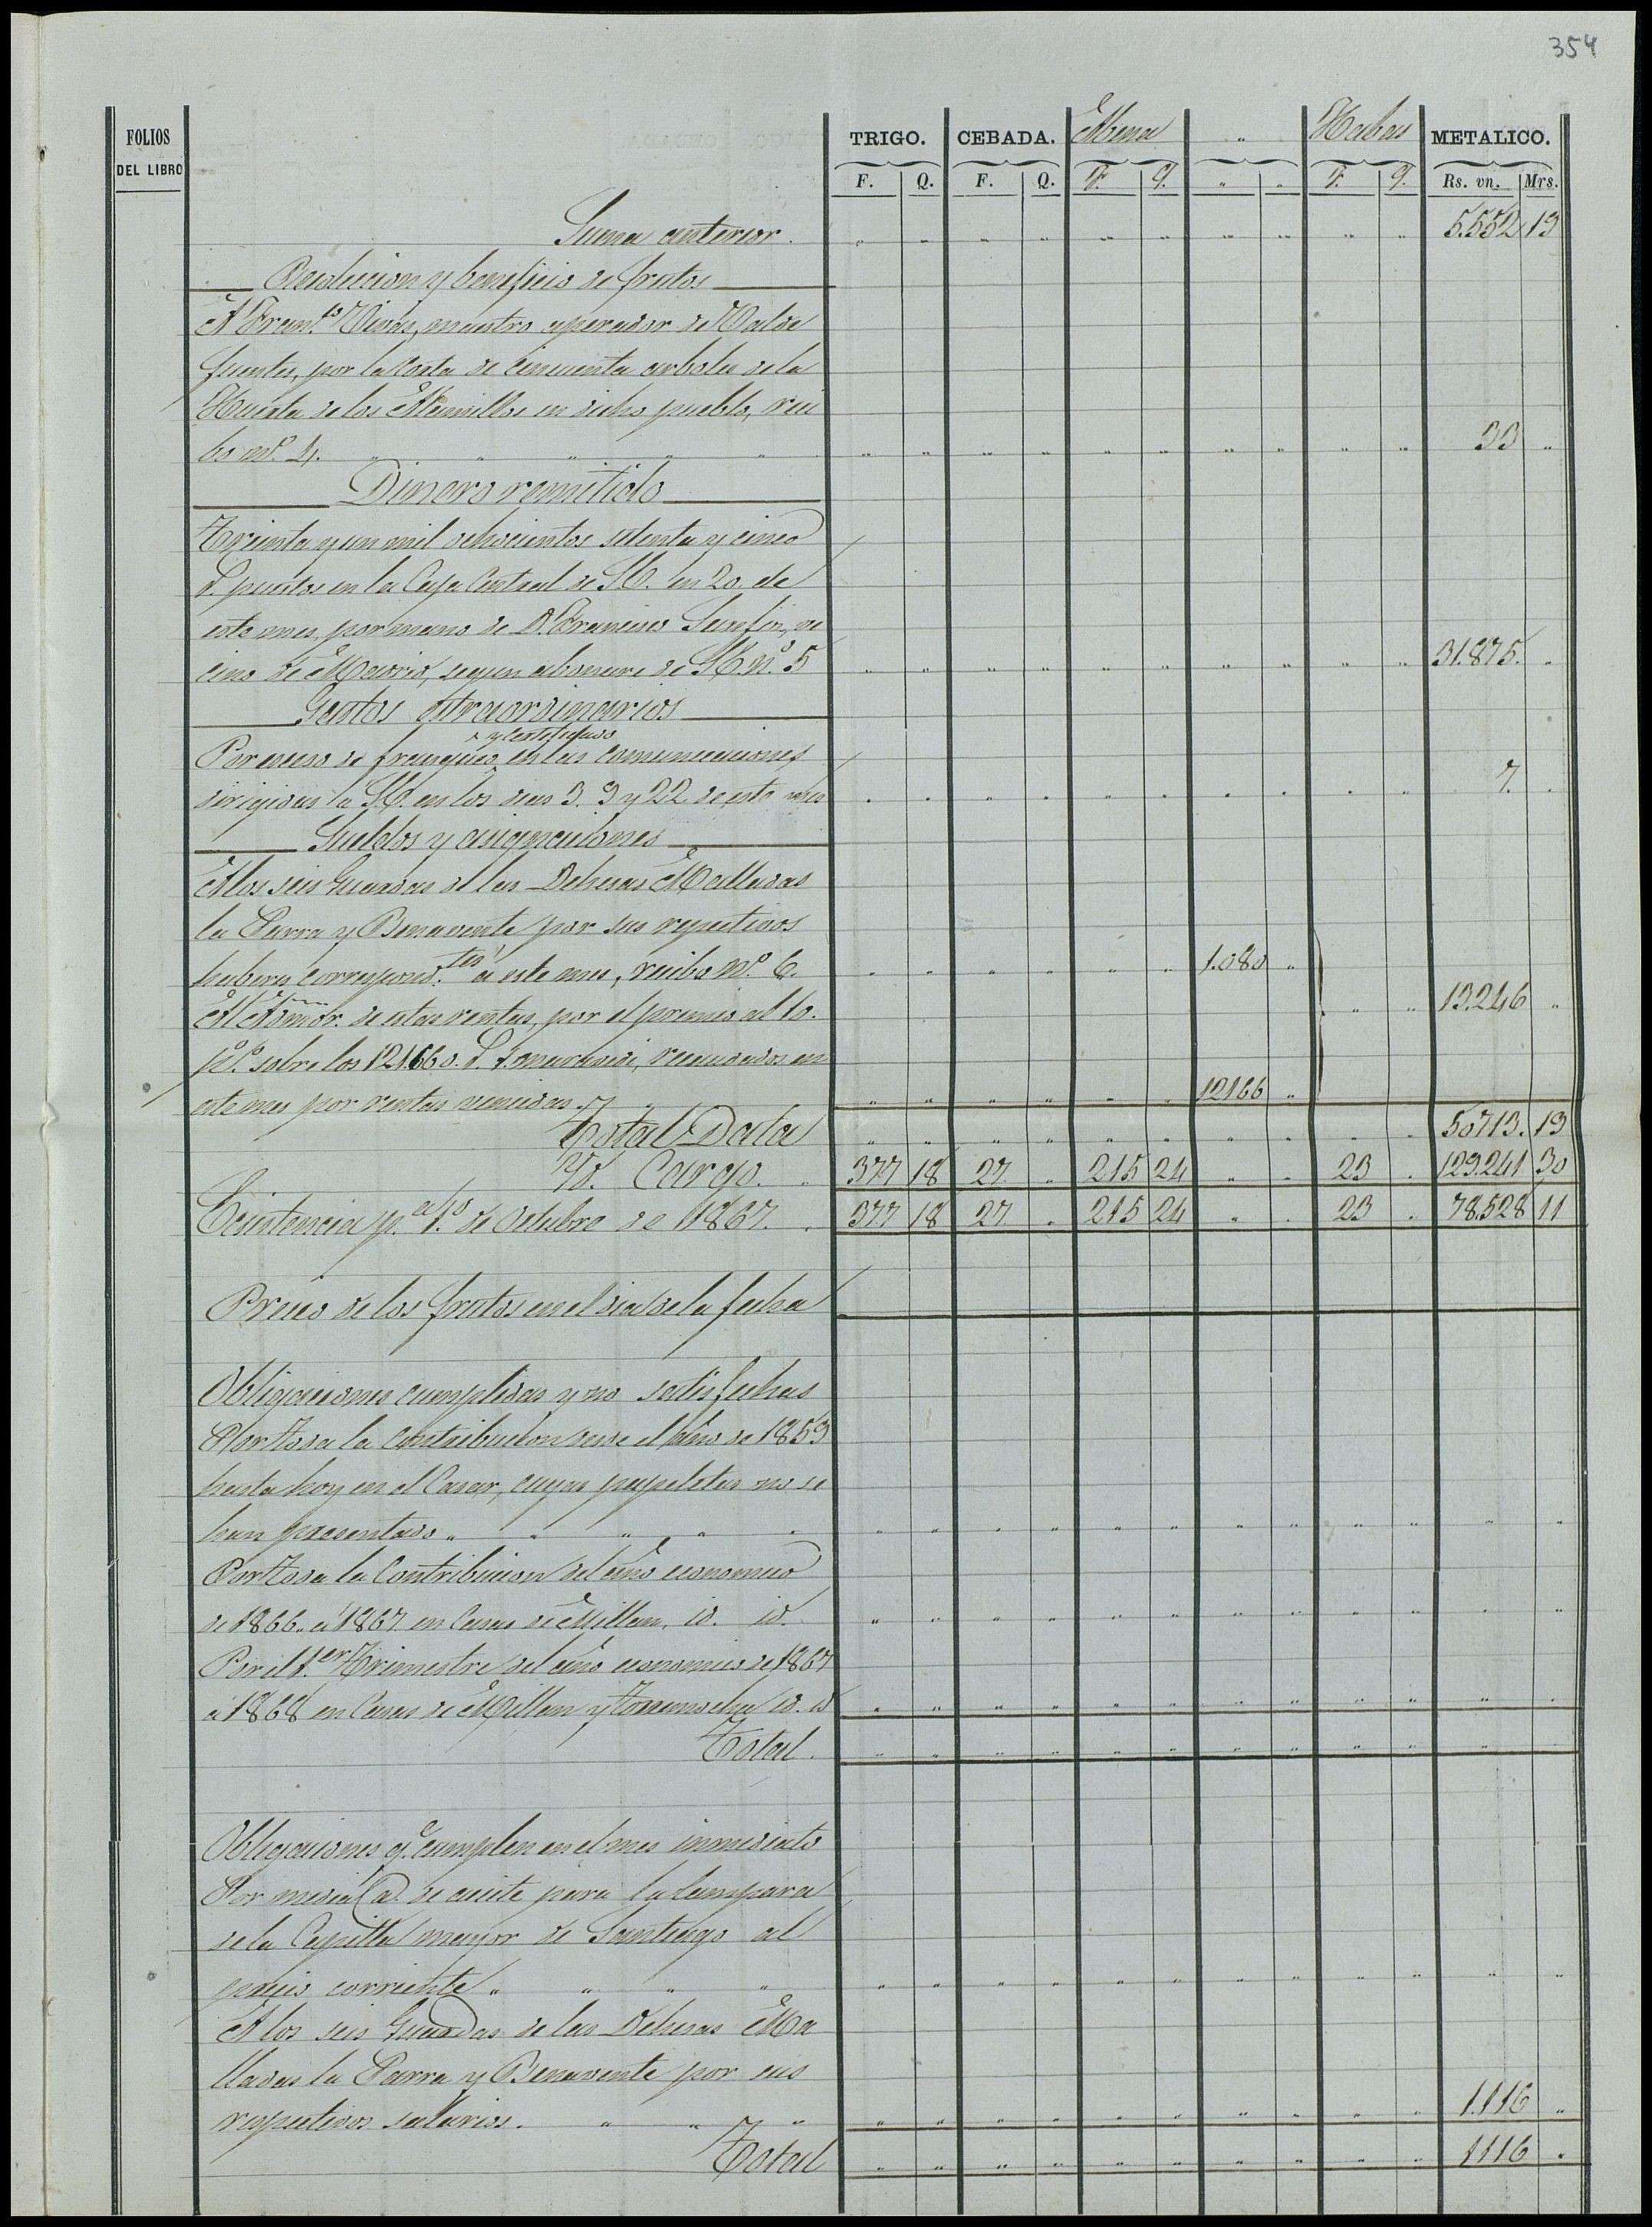 354
FOLIOS DEL LIBRO TRIGO. CEBADA. Abena " Habas METALICO.
F. Q. F. Q. F. Q. " " F. Q. Rs. vn. Mrs.
Suma anterior. " " " " " " " " " " 5.552 19
Recoleccion y beneficio de frutos
A Fran.co Vivas, maestro aperador de Valde
fuentes, por la Corta de cincuenta arboles de la
Huerta de los Alamillos en dicho pueblo, reci
bo nº. 4. " " " " " " " " " " " " " " 33 "
Dinero remitido
Treinta y un mil ochocientos setenta y cinco
r. puestos en la Caja Central de S.E. en 20. de
este mes, por mano de D. Francisco Serafin, ve
cino de Madrid, segun abonaré de S.E. nº. 5 " " " " " " " " " " 31.875. "
Gastos extraordinarios
y certificado
Por exceso de franqueo en las comunicaciones
dirigidas a S.E. en los dias 3. 9 y 22 de este mes " " " " " " " " " " 7. "
Sueldos y asignaciones
A los seis Guardas de las Dehesas Malladas
la Parra y Benavente por sus respectivos
haberes correspond.tes a este mes, recibo nº. 6. " " " " " " 1.080 "
Al Admor. de estas rentas, por el premio al 10. " " 13.246 "
pº.º sobre los 121.660. r. recaudados en
este mes por rentas vencidas. " " " " " " " 12166 "
Total Data " " " " " " " " " " 50.713. 19
Yd. Cargo. " 377 18 27 " 215 24 " " 23 " 129.241 30
Existencia p.a 1.º de Octubre de 1867. " 377 18 27 " 215 24 " " 23 " 78.528 11
Precio de los frutos en el dia de la fecha
Obligaciones cumplidas y no satisfechas
Por toda la Contribucion desde el año de 1859
hasta hoy en el Casar, cuyas papeletas no se
han presentado " " " " " " " " " " " " " " " " "
Por toda la Contribucion del año economico
de 1866. a 1867 en Casas de Millan, id. id. " " " " " " " " " " " "
Por el 1.er Trimestre del año economico de 1867
a 1868 en Casas de Millan y Torremocha id. id " " " " " " " " " " " "
Total. " " " " " " " " " " "
Obligaciones q.e cumplen en el mes inmediato
Por media @. de aceite para la lampara
de la Capilla mayor de Santiago al
precio corriente " " " " " " " " " " " " " " " "
A los seis Guardas de las Dehesas Ma
lladas la Parra y Benavente por sus
respectivos salarios. " " " " " " " " " " " " " 1.116 "
Total " " " " " " " " " " 1116 "